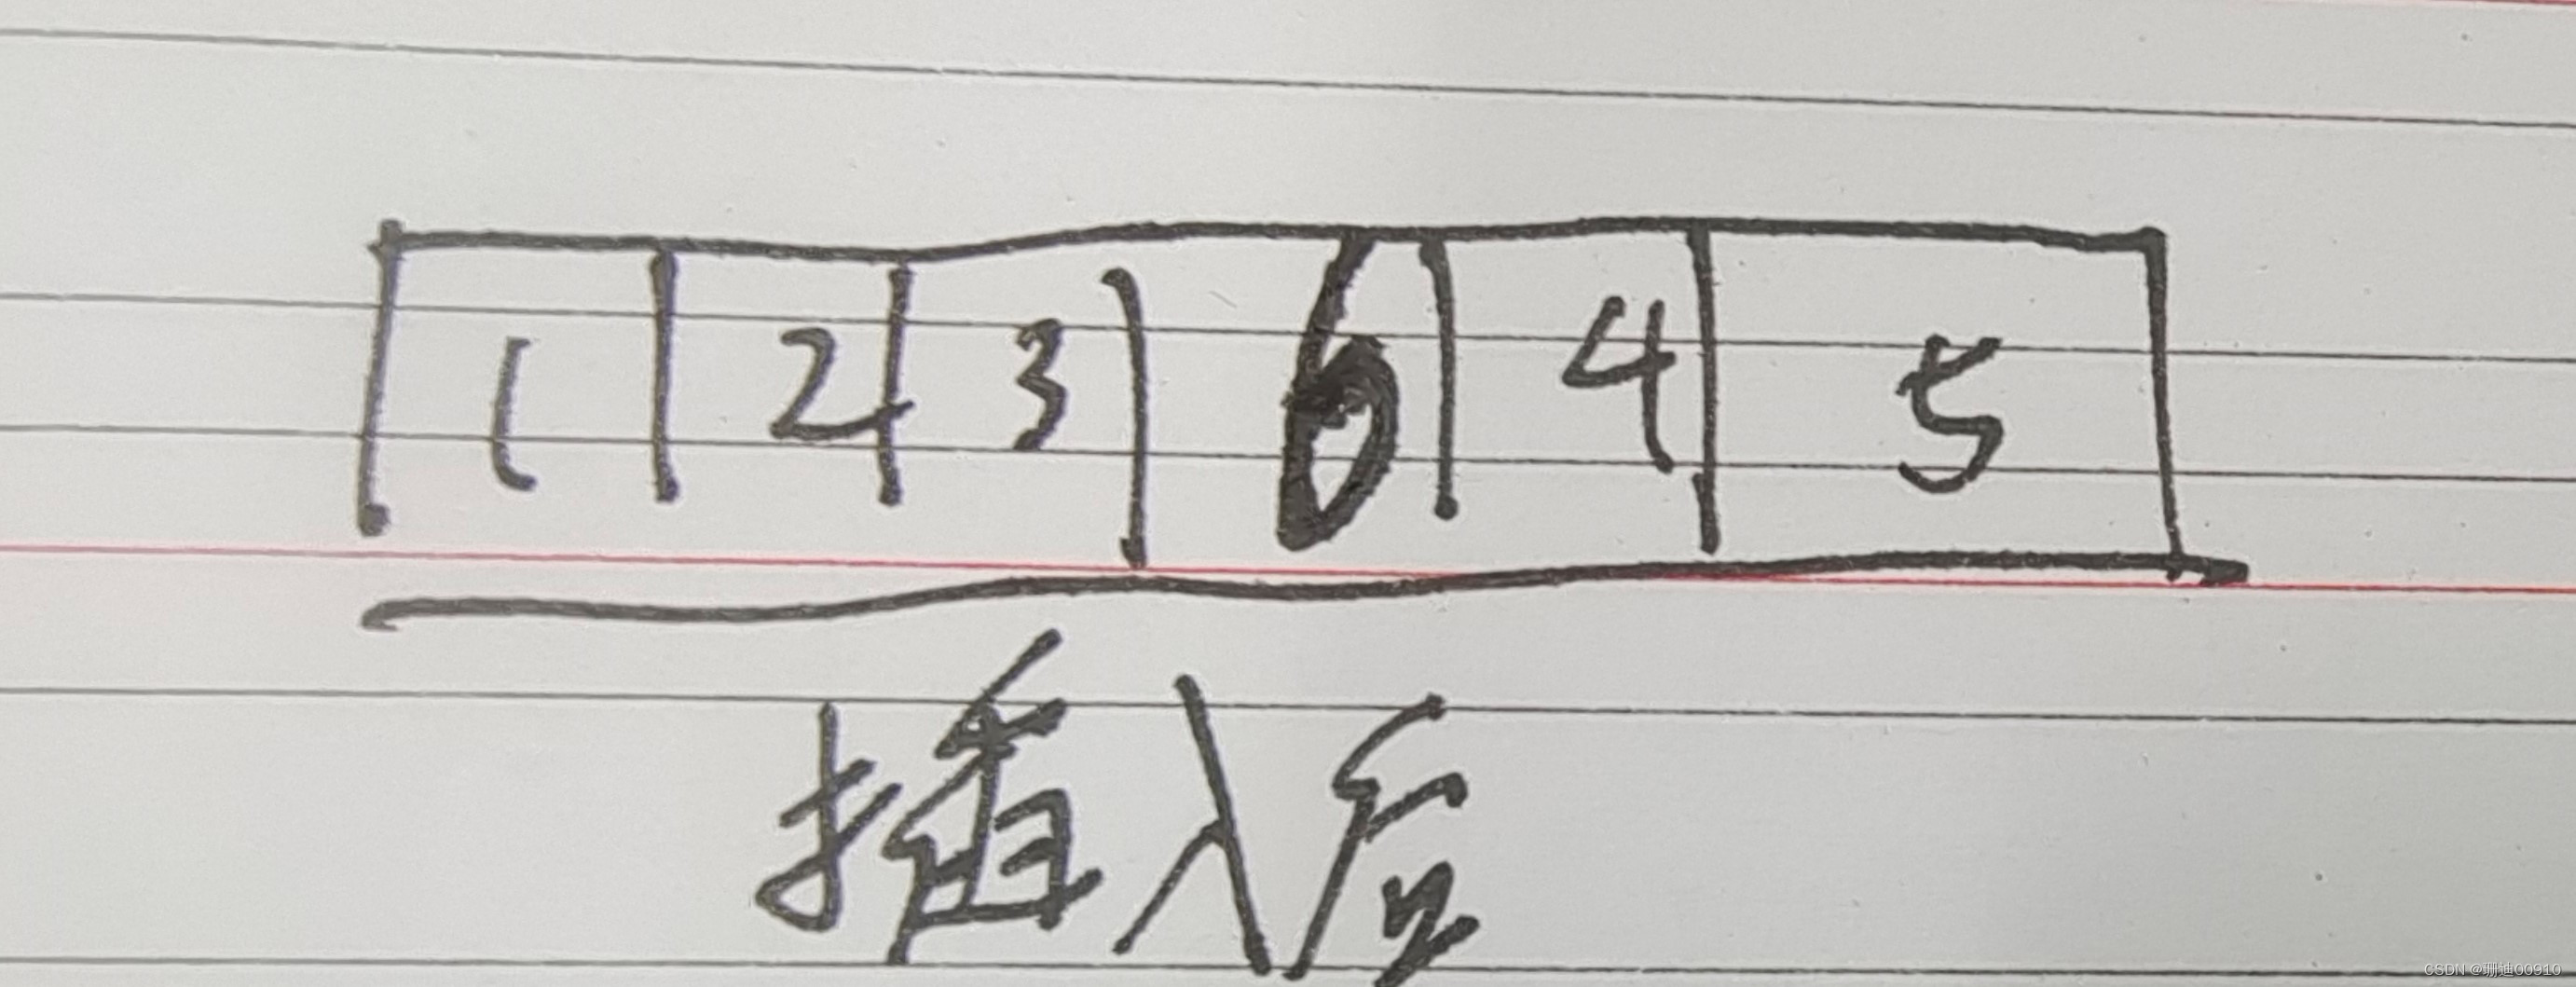 1 2 3 6 4 5
插入后
CSDN @珊迪00910